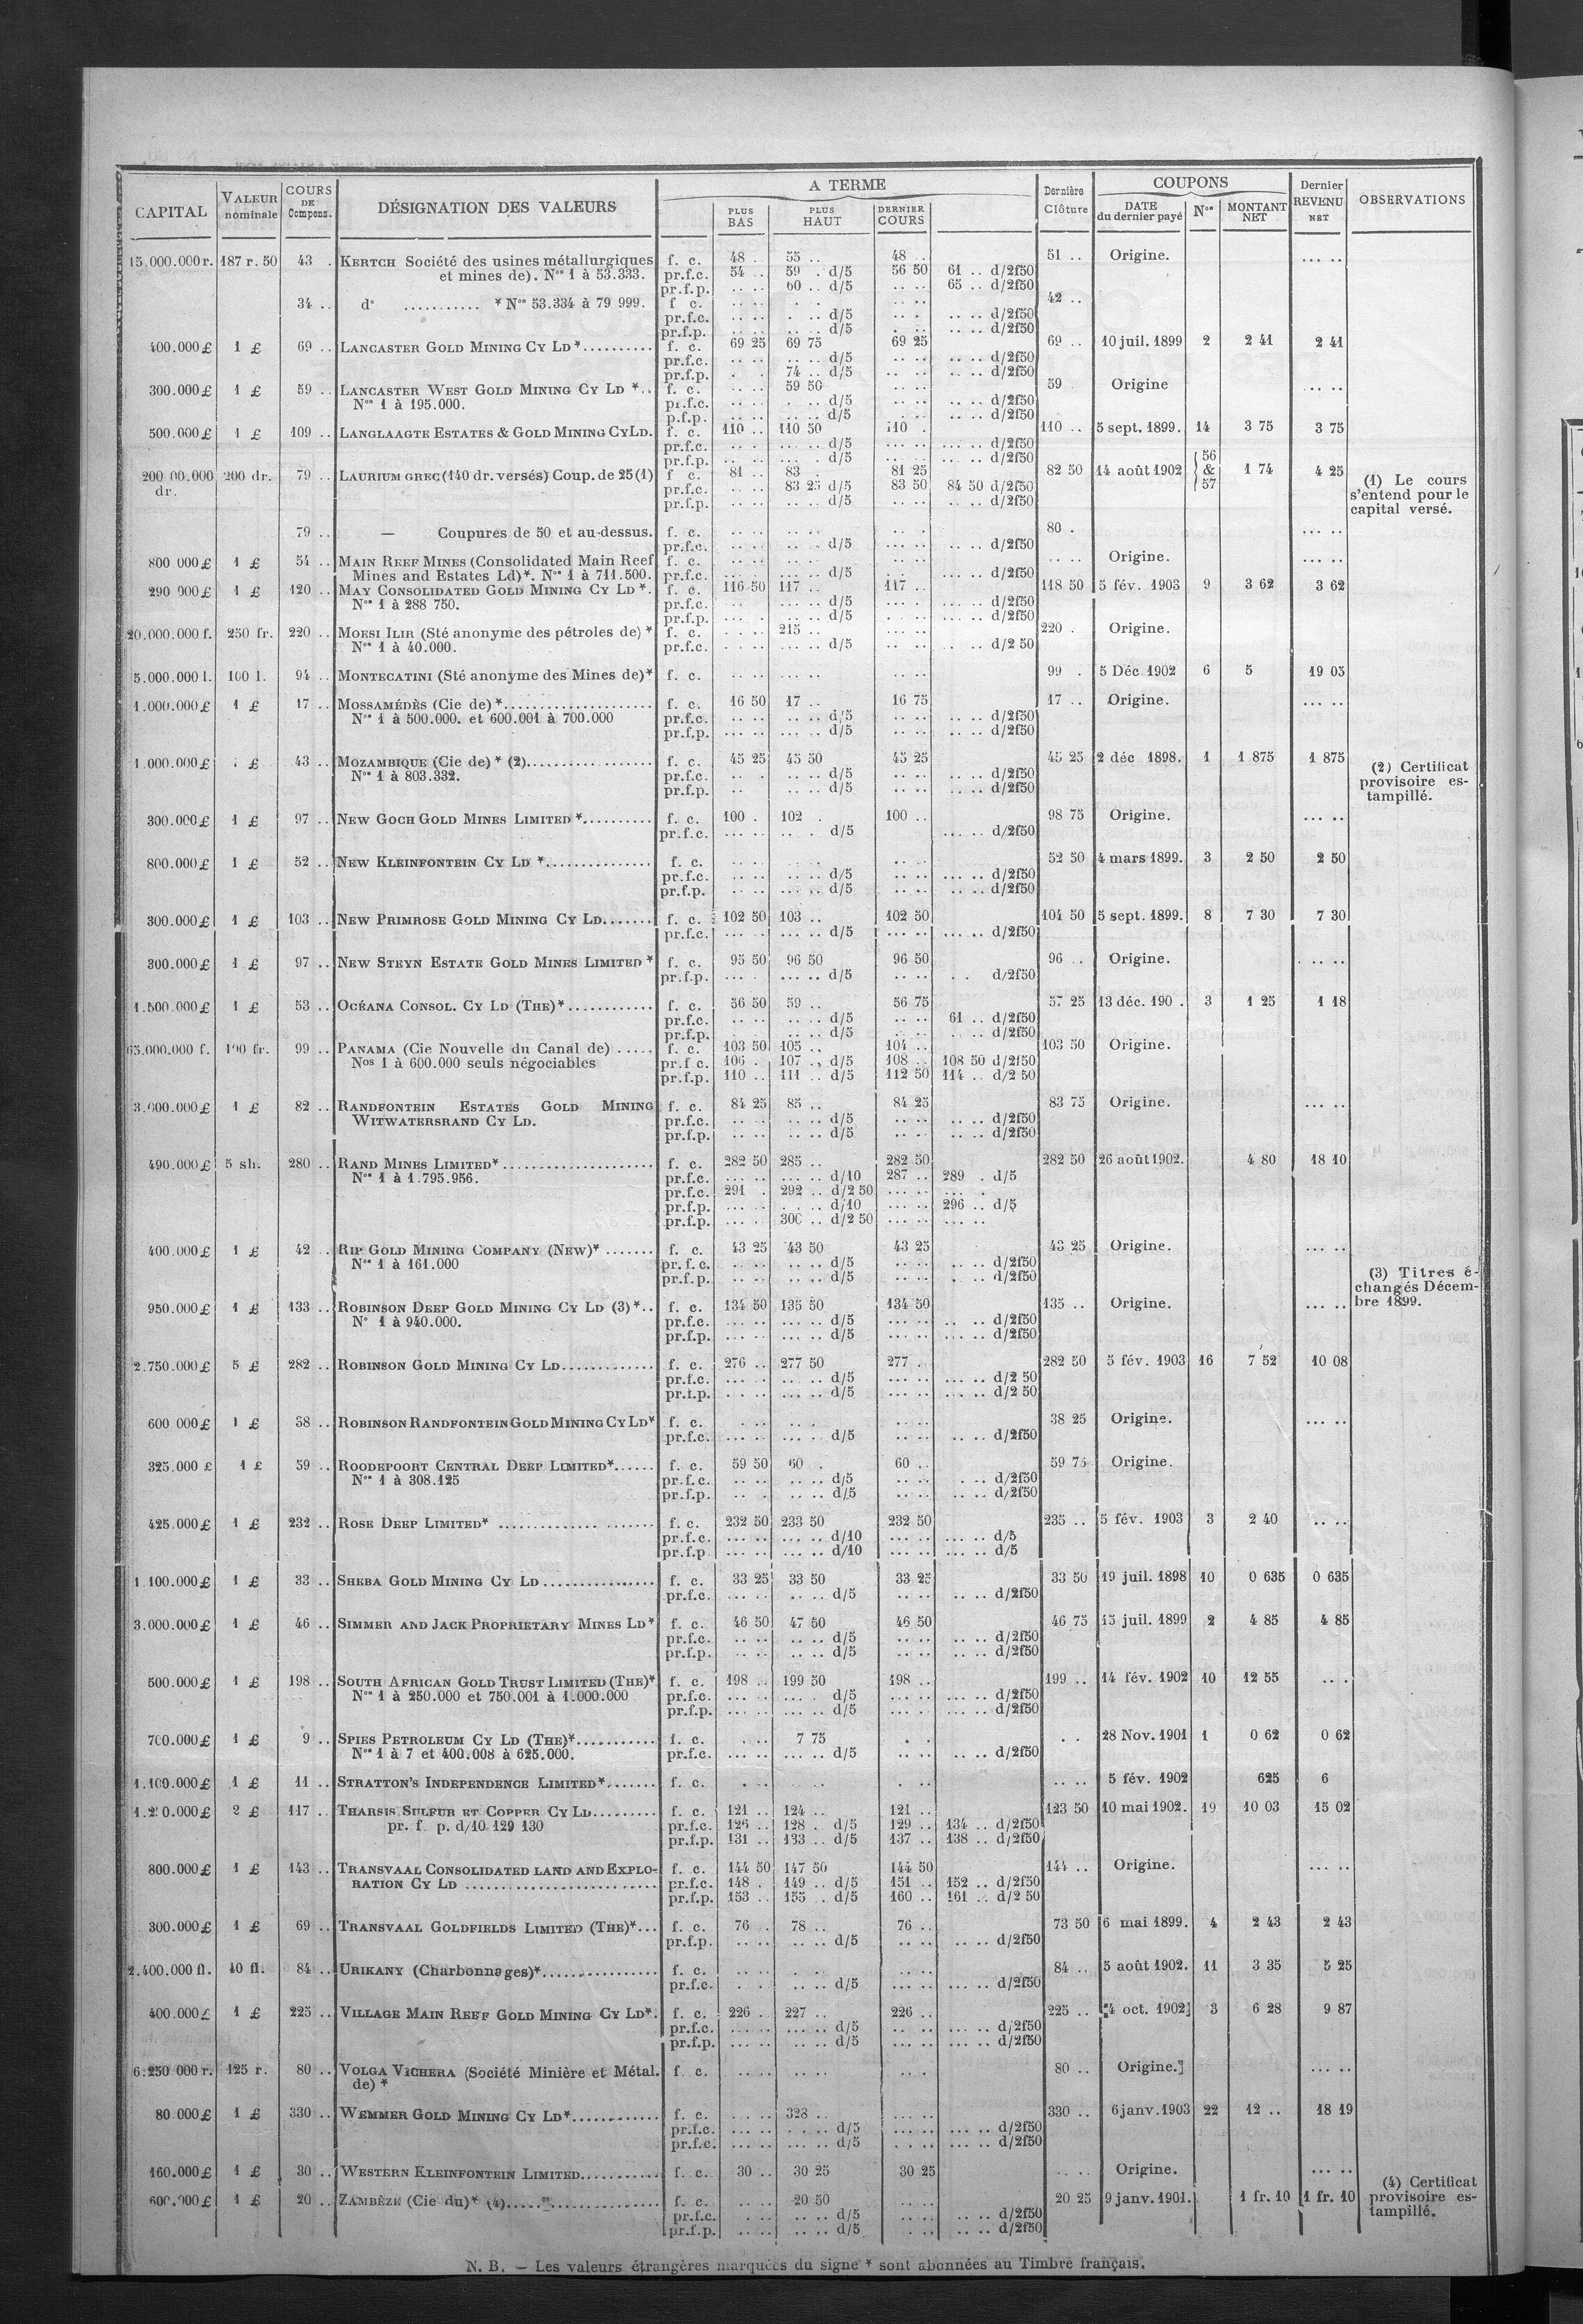 CAPITAL VALEUR nominale COURS DE Compens. DÉSIGNATION DES VALEURS A TERME PLUS BAS PLUS HAUT DERNIER COURS Dernière Clôture COUPONS DATE du dernier payé Nos MONTANT NET Dernier REVENU NET OBSERVATIONS
15.000.000 r. 187 r. 50 43 . KERTCH Société des usines métallurgiques f. c. 48 . 55 .. 48 .. 51 .. Origine. ... ..
et mines de). Nos 1 à 53.333. pr.f.c. 54 .. 59 . d/5 56 50 61 .. d/2f50
pr.f.p. .. .. 60 .. d/5 .. .. 65 .. d/2f50
34 .. do ........... * Nos 53.334 à 79 999. f c. .. .. . . .. .. 42 ..
pr.f.c. .. .. . .. d/5 .. . .. .. d/2f50
pr.f.p. .. .. .. .. d/5 . .. .. .. d/2f50
400.000 £ 1 £ 69 .. LANCASTER GOLD MINING CY LD *.......... f. c. 69 25 69 75 69 25 69 .. 10 juil. 1899 2 2 41 2 41
pr.f.c. .. .. .. .. d/5 .. .. .. .. d/2f50
pr.f.p. . . 74 .. d/5 .. .. .. .. d/2f50
300.000 £ 1 £ 59 .. LANCASTER WEST GOLD MINING CY LD *.. f. c. .. .. 59 50 .. .. 59 Origine ... ..
Nos 1 à 195.000. pr.f.c. .. .. . .. d/5 .. .. .. .. d/2f50
p.f.p. .. .. .. .. d/5 . .. .. .. d/2f50
500.000 £ 1 £ 109 .. LANGLAAGTE ESTATES & GOLD MINING CY LD. f. c. 110 .. 110 50 110 . 110 .. 5 sept. 1899. 14 3 75 3 75
pr.f.c. ... .. ... .. d/5 ... .. ... .. d/2f50
pr.f.p. .. .. ... . d/5 .. .. .. .. d/2f50
200 00.000 dr. 200 dr. 79 .. LAURIUM GREC (140 dr. versés) Coup. de 25 (1) f c. 81 .. 83 . 81 25 82 50 14 août 1902 56 & 57 1 74 4 25 (1) Le cours s'entend pour le capital versé.
pr.f.c. .. .. 83 25 d/5 83 50 84 50 d/2f50
pr.f.p. .. .. .. .. d/5 .. .. .. .. d/2f50
79 .. — Coupures de 50 et au-dessus. f. c. .. .. .. .. .. .. 80 . ... ..
pr.f.c. .. .. .. . d/5 ... .. .. .. d/2f50
800 000 £ 1 £ 54 .. MAIN REEF MINES (Consolidated Main Reef f. c. .. .. .. .. .. .. .. .. Origine. ... ..
Mines and Estates Ld)*. Nos 1 à 711.500. pr.f.c. ... .. ... .. d/5 ... . ... .. d/2f50
290 000 £ 1 £ 120 .. MAY CONSOLIDATED GOLD MINING CY LD *. f. c. 116 50 117 .. 117 .. 118 50 5 fév. 1903 9 3 62 3 62
Nos 1 à 288 750. pr.f.c. .. ... .. d/5 ... . ... .. d/2f50
pr.f.p. ... .. .. .. d/5 . .. ... .. d/2f50
20.000.000 f. 250 fr. 220 .. MOESI ILIR (Sté anonyme des pétroles de) * f. c. . .. 215 .. ... .. 220 . Origine.
Nos 1 à 40.000. pr.f.c. . .. ... .. d/5 .. .. . .. d/2 50
5.000.000 l. 100 l. 94 .. MONTECATINI (Sté anonyme des Mines de)* f. c. .. .. .. .. .. .. 99 . 5 Déc 1902 6 5 19 05
1.000.000 £ 1 £ 17 .. MOSSAMÉDÈS (Cie de) *..................... f. c. 16 50 17 .. 16 75 17 .. Origine. ... ..
Nos 1 à 500.000. et 600.001 à 700.000 pr.f.c. ... .. .. .. d/5 .. .. .. .. d/2f50
pr.f.p. ... .. .. .. d/5 .. .. .. .. d/2f50
1.000.000 £ £ 43 .. MOZAMBIQUE (Cie de) * (2).................. f. c. 45 25 45 50 45 25 45 25 2 déc 1898. 1 1 875 1 875
Nos 1 à 803.332. pr.f.c. .. . .. .. d/5 .. .. .. .. d/2f50 (2) Certificat provisoire estampillé.
pr.f.p. .. .. .. d/5 .. .. .. .. d/2f50
300.000 £ 1 £ 97 .. NEW GOCH GOLD MINES LIMITED *.......... f. c. 100 . 102 . 100 .. 98 75 Origine. ... ..
pr.f.c. ... .. .. . d/5 ... .. d/2f50
800.000 £ 1 £ 52 .. NEW KLEINFONTEIN CY LD *............... f. c. .. .. .. .. .. .. 52 50 4 mars 1899. 3 2 50 2 50
pr.f.c. .. .. ... .. d/5 .. .. ... .. d/2f50
pr.f.p. .. .. ... .. d/5 .. .. .. .. d/2f50
300.000 £ 1 £ 103 .. NEW PRIMROSE GOLD MINING CY LD....... f. c. 102 50 103 .. 102 50 104 50 5 sept. 1899. 8 7 30 7 30
pr.f.c. ... .. ... .. d/5 ... .. ... .. d/2f50
300.000 £ 1 £ 97 .. NEW STEYN ESTATE GOLD MINES LIMITED * f. c. 95 50 96 50 96 50 96 .. Origine. ... ..
pr.f.p. ... . ... .. d/5 .. .. . . d/2f50
1.500.000 £ 1 £ 53 .. OCÉANA CONSOL. CY LD (THE)*............ f. c. 56 50 59 .. 56 75 57 25 13 déc. 190 . 3 1 25 1 18
pr.f.c. .. .. .. .. d/5 .. .. 61 .. d/2f50
pr.f.p. .. .. .. .. d/5 . .. . .. d/2f50
65.000.000 f. 100 fr. 99 .. PANAMA (Cie Nouvelle du Canal de) ..... f. c. 103 50 105 .. 104 .. 103 50 Origine.
Nos 1 à 600.000 seuls négociables pr.f c. 106 . 107 .. d/5 108 .. 108 50 d/2f50
pr.f.p. 110 .. 111 .. d/5 112 50 114 .. d/2 50
3.000.000 £ 1 £ 82 .. RANDFONTEIN ESTATES GOLD MINING f. c. 84 25 85 .. 84 25 83 75 Origine. ... ..
WITWATERSRAND CY LD. pr.f.c. .. .. .. .. d/5 .. .. .. .. d/2f50
pr.f.p. .. .. .. .. d/5 .. .. .. .. d/2f50
490.000 £ 5 sh. 280 .. RAND MINES LIMITED*..................... f. c. 282 50 285 .. 282 50 282 50 26 août 1902. 4 80 18 10
Nos 1 à 1.795.956. pr.f.c. ... .. ... .. d/10 287 .. 289 . d/5
pr.f.c. 291 . 292 .. d/2 50 ... .. ... .
pr.f.p. ... . . .. d/10 ... .. 296 .. d/5
pr.f.p. ... . 300 .. d/2 50 ... .. ... ..
400.000 £ 1 £ 42 .. RIP GOLD MINING COMPANY (NEW)* ....... f. c. 43 25 43 50 43 25 43 25 Origine. ... ..
Nos 1 à 161.000 pr.f.c. .. .. .. .. d/5 .. .. .. .. d/2f50
pr.f.p. .. .. .. .. d/5 .. .. . .. d/2f50 (3) Titres échangés Décembre 1899.
950.000 £ 1 £ 133 .. ROBINSON DEEP GOLD MINING CY LD (3)*.. f. c. 134 50 135 50 134 50 135 .. Origine. ... ..
No 1 à 940.000. pr.f.c. ... .. ... .. d/5 ... .. .. .. d/2f50
pr.f.p. ... .. ... .. d/5 ... .. ... .. d/2f50
2.750.000 £ 5 £ 282 .. ROBINSON GOLD MINING CY LD............. f. c. 276 .. 277 50 277 . 282 50 5 fév. 1903 16 7 52 10 08
pr.f.c. ... . ... .. d/5 ... .. ... .. d/2 50
pr.t.p. . .. ... .. d/5 ... .. ... .. d/2 50
600 000 £ 1 £ 38 .. ROBINSON RANDFONTEIN GOLD MINING CY LD* f. c. . .. .. . .. .. 38 25 Origine. ... ..
pr.f.c. ... .. ... . d/5 .. .. .. .. d/2f50
325.000 £ 1 £ 59 .. ROODEPOORT CENTRAL DEEP LIMITED*...... f. c. 59 50 60 . 60 .. 59 75 Origine.
Nos 1 à 308.125 pr.f.c. .. .. .. .. d/5 .. .. . .. d/2f50
pr.f.p. .. . .. .. d/5 .. .. .. .. d/2f50
425.000 £ 1 £ 232 .. ROSE DEEP LIMITED* ..................... f. c. 232 50 233 50 232 50 235 .. 5 fév. 1903 3 2 40 .. ..
pr.f.c. ... .. ... .. d/10 ... .. ... .. d/5
pr.f.p ... .. ... .. d/10 ... .. ... .. d/5
1.100.000 £ 1 £ 33 .. SHEBA GOLD MINING CY LD ................ f. c. 33 25 33 50 33 25 33 50 19 juil. 1898 10 0 635 0 635
pr.f.c. ... .. .. .. d/5 .. .. .. .. d/2f50
3.000.000 £ 1 £ 46 .. SIMMER AND JACK PROPRIETARY MINES LD* f. c. 46 50 47 50 46 50 46 75 15 juil. 1899 2 4 85 4 85
pr.f.c. .. .. .. .. d/5 .. .. .. .. d/2f50
pr.f.p. .. .. .. .. d/5 .. .. .. .. d/2f50
500.000 £ 1 £ 198 .. SOUTH AFRICAN GOLD TRUST LIMITED (THE)* f. c. 198 .. 199 50 198 .. 199 .. 14 fév. 1902 10 12 55 .. .
Nos 1 à 250.000 et 750.001 à 1.000.000 pr.f.c. ... .. ... . d/5 ... .. ... .. d/2f50
pr.f.p. ... .. ... .. d/5 ... .. ... .. d/2f50
700.000 £ 1 £ 9 .. SPIES PETROLEUM CY LD (THE)*........... f. c. . .. 7 75 . . . . 28 Nov. 1901 1 0 62 0 62
Nos 1 à 7 et 400.008 à 625.000. pr.f.c. ... .. ... .. d/5 .. .. .. .. d/2f50
1.100.000 £ 1 £ 11 .. STRATTON'S INDEPENDENCE LIMITED*....... f. c. . .. .. .. . .. .. .. 5 fév. 1902 625 6
1.2 0.000 £ 2 £ 117 .. THARSIS SULFUR ET COPPER CY LD......... f. c. 121 .. 124 .. 121 .. 123 50 10 mai 1902. 19 10 03 15 02
pr. f. p. d/10 129 130 pr.f.c. 126 .. 128 . d/5 129 .. 134 .. d/2f50
pr.f.p. 131 .. 133 .. d/5 137 .. 138 .. d/2f50
800.000 £ 1 £ 143 .. TRANSVAAL CONSOLIDATED LAND AND EXPLO- f. c. 144 50 147 50 144 50 144 .. Origine. ... ..
RATION CY LD ........................... pr.f.c. 148 . 149 .. d/5 151 .. 152 .. d/2f50
pr.f.p. 153 .. 155 .. d/5 160 .. 161 .. d/2 50
300.000 £ 1 £ 69 .. TRANSVAAL GOLDFIELDS LIMITED (THE)*... f. c. 76 . 78 .. 76 .. 73 50 6 mai 1899. 4 2 43 2 43
pr.f.p. .. .. .. .. d/5 .. .. .. .. d/2f50
2.400.000 fl. 40 fl. 84 .. URIKANY (Charbonnages)*................ f. c. .. .. . .. .. .. 84 .. 5 août 1902. 11 3 35 5 25
pr.f.c. . . .. .. d/5 .. .. .. .. d/2f50
400.000 £ 1 £ 225 .. VILLAGE MAIN REEF GOLD MINING CY LD*. f. c. 226 .. 227 .. 226 .. 225 .. 4 oct. 1902 3 6 28 9 87
pr.f.c. ... .. ... .. d/5 .. .. ... .. d/2f50
pr.f.p. ... .. ... .. d/5 ... .. ... .. d/2f50
6.250 000 r. 125 r. 80 .. VOLGA VICHERA (Société Minière et Métal. f. c. .. .. .. .. .. . 80 .. Origine. ... ..
de) *
80 000 £ 1 £ 330 .. WEMMER GOLD MINING CY LD*............ f. c. ... .. 328 .. ... .. 330 .. 6 janv. 1903 22 12 .. 18 19
pr.f.c. ... .. . . .. d/5 ... .. ... .. d/2f50
pr.f.c. ... .. ... .. d/5 . .. ... .. d/2f50
160.000 £ 1 £ 30 .. WESTERN KLEINFONTEIN LIMITED........... f. c. 30 .. 30 25 30 25 .. .. Origine. ... ..
600.000 £ 1 £ 20 .. ZAMBÈZE (Cie du)* (4)..................... f. c. .. .. 20 50 .. .. 20 25 9 janv. 1901. 1 fr. 10 1 fr. 10 (4) Certificat provisoire estampillé.
pr.f.c. . .. .. .. d/5 .. .. .. .. d/2f50
pr.f.p. .. .. .. .. d/5 .. .. .. d/2f50
N. B. — Les valeurs étrangères marquées du signe * sont abonnées au Timbre français.